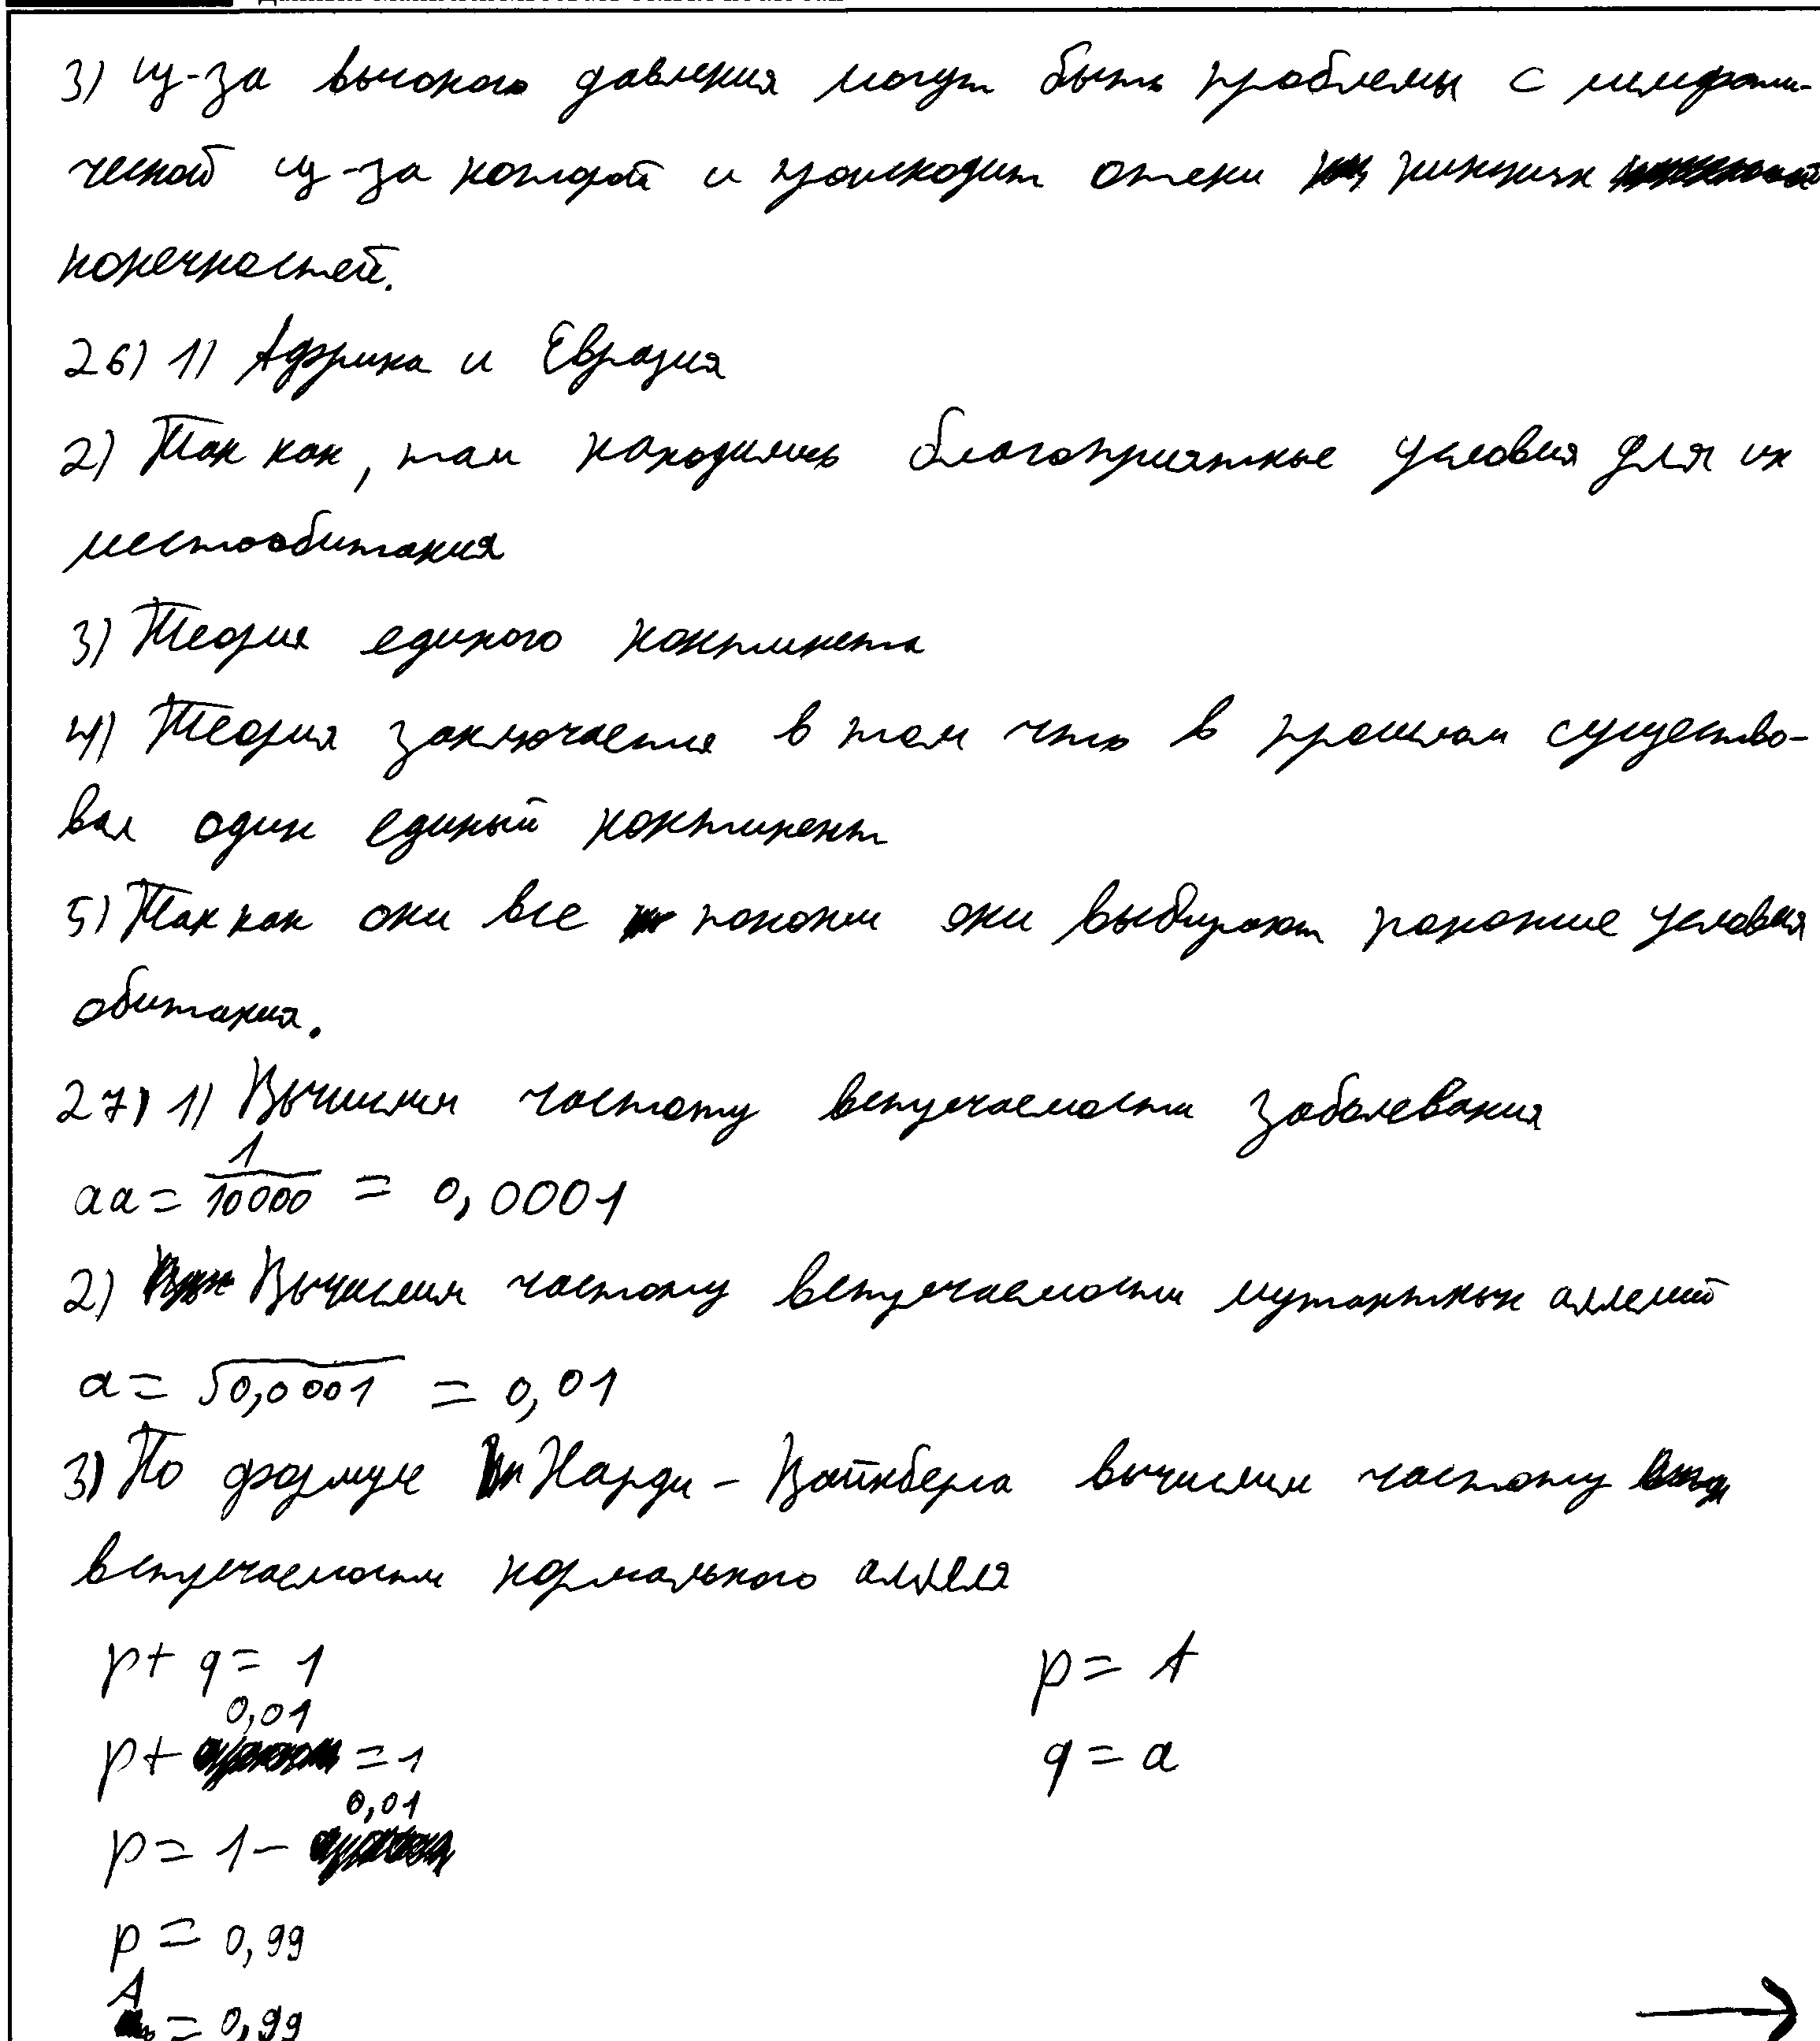 3) из-за высокого давления могут быть проблемы с лимфати-
ческой из-за которой и происходит отеки нижних
конечностей.
26) 1) Африка и Евразия
2) Так как, там находились благоприятные условия для их
местообитания
3) Теория единого континента
4) Теория заключается в том что в прошлом существо-
вал один единый континент
5) Так как они все похожи они выбирают похожие условия
обитания.
27) 1) Вычислим частоту встречаемости заболевания
aa = 1/10000 = 0,0001
2) Вычислим частоту встречаемости мутантных аллелий
a = √0,0001 = 0,01
3) По формуле Харди - Вайнберга вычислим частоту
встречаемости нормального аллеля
p + q = 1 p = A
p + 0,01 = 1 q = a
p = 1 - 0,01
p = 0,99
A = 0,99
→